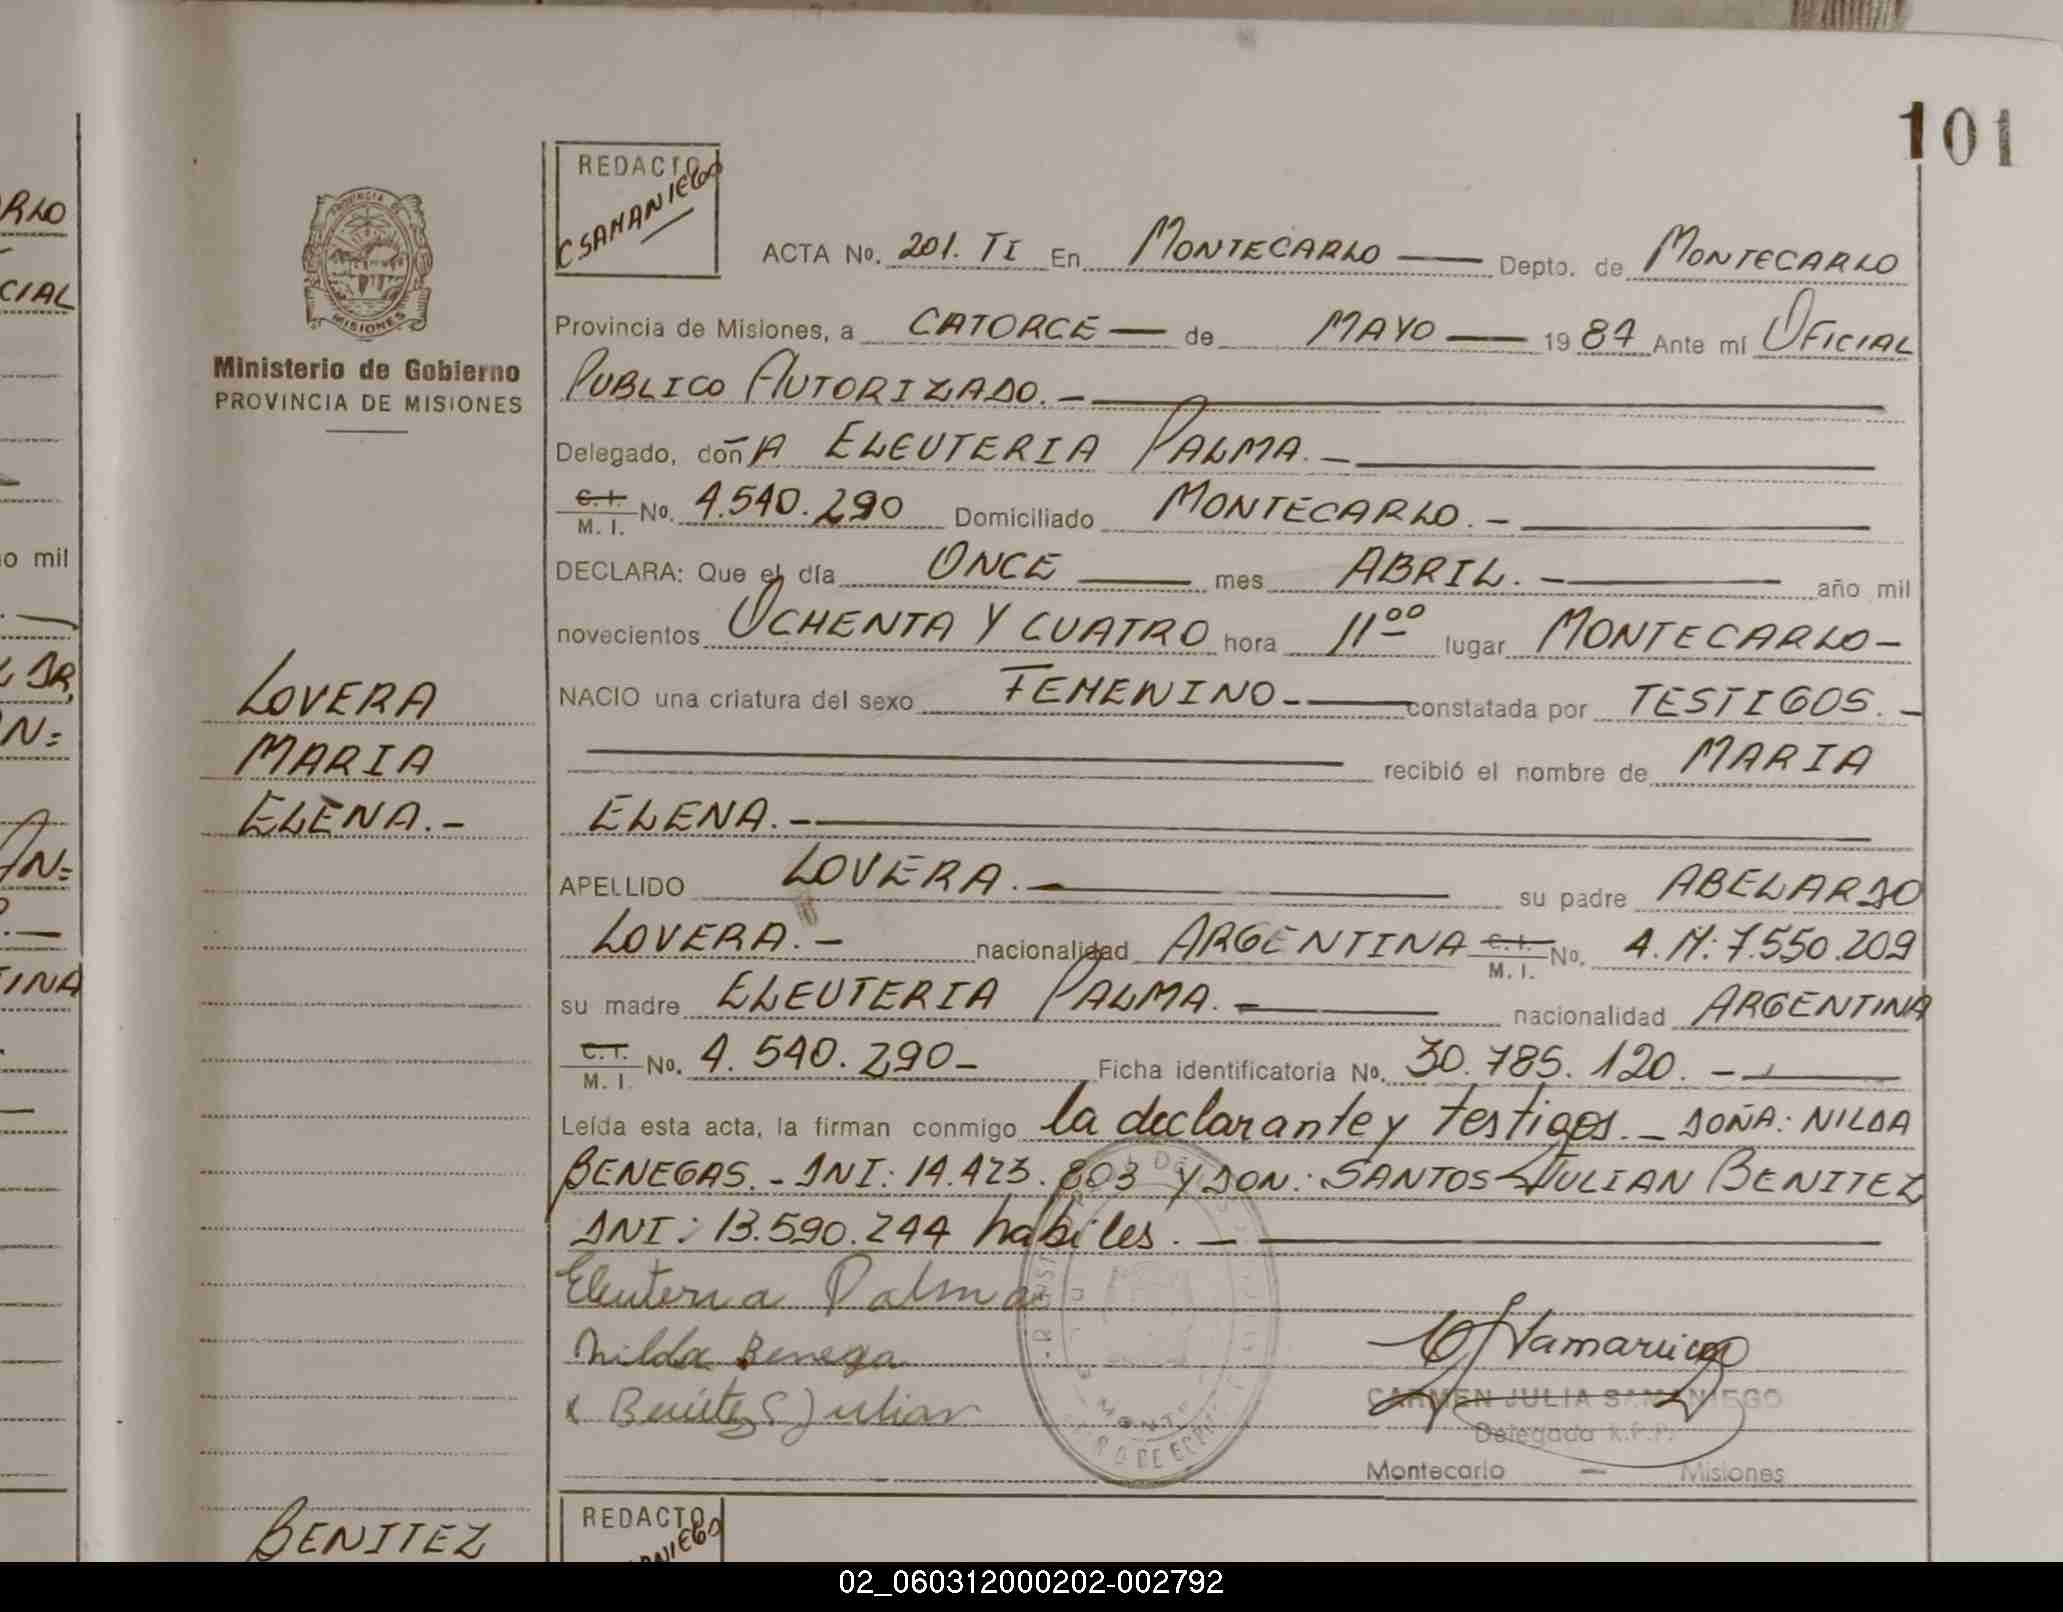 101
REDACTO
CSAMANIEGO
ACTA No. 201. TI En MONTECARLO Depto. de MONTECARLO
PROVINCIA DE
MISIONES
Provincia de Misiones, a CATORCE de MAYO 1984 Ante mí OFICIAL
Ministerio de Gobierno
PROVINCIA DE MISIONES
PUBLICO AUTORIZADO. -
Delegado, doñA ELEUTERIA PALMA. -
C. I. / M. I. No. 4.540.290 Domiciliado MONTECARLO. -
DECLARA: Que el día ONCE mes ABRIL. - año mil
novecientos OCHENTA Y CUATRO hora 11ºº lugar MONTECARLO -
NACIO una criatura del sexo FEMENINO - constatada por TESTIGOS. -
recibió el nombre de MARIA
ELENA. -
APELLIDO LOVERA. - su padre ABELARDO
LOVERA. - nacionalidad ARGENTINA C. I. / M. I. No. A.M: 7.550.209
su madre ELEUTERIA PALMA. - nacionalidad ARGENTINA
C. I. / M. I. No. 4.540.290 - Ficha identificatoria No. 30.785.120. -
Leída esta acta, la firman conmigo la declarante y testigos. - DOÑA: NILDA
BENEGAS. - DNI: 14.423.803 Y DON: SANTOS JULIAN BENITEZ
DNI: 13.590.244 habiles. -
Eleuteria Palma
Nilda Benega
x Benitez S Julian
CARMEN JULIA SAMANIEGO
Delegada R.P.P.
Montecarlo - Misiones
LOVERA
MARIA
ELENA. -
REDACTO
BENITEZ
RLO
CIAL
o mil
DR,
N=
AN=
TINA
02_060312000202-002792